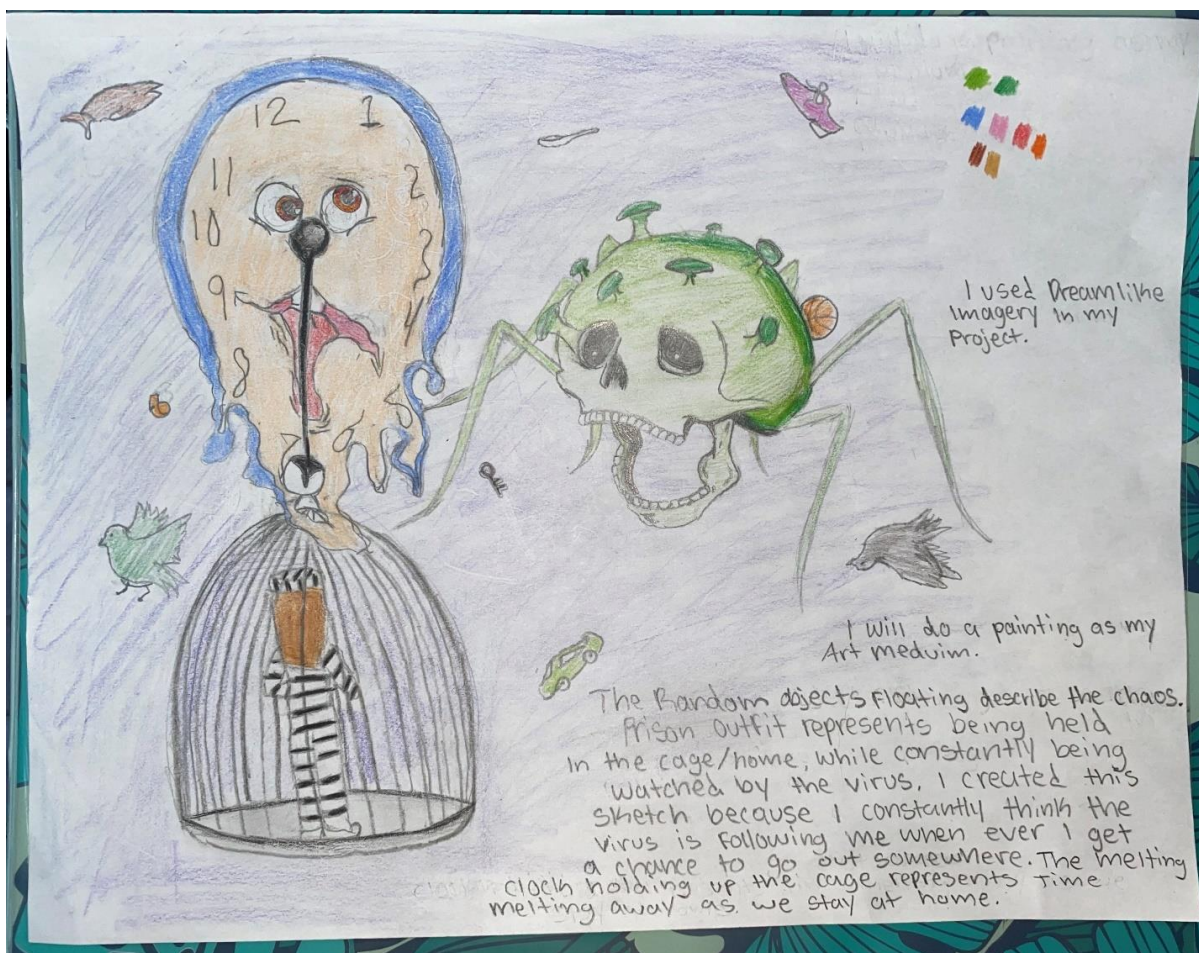 12 1
11 2
10 3
9 4
8
I used Dreamlike
Imagery in my
Project.
I will do a painting as my
Art meduim.
The Random objects Floating describe the chaos.
Prison outfit represents being held
In the cage/home, while constantly being
watched by the virus. I created this
sketch because I constantly think the
virus is Following me when ever I get
a chance to go out somewhere. The melting
clock holding up the cage represents Time
melting away as we stay at home.